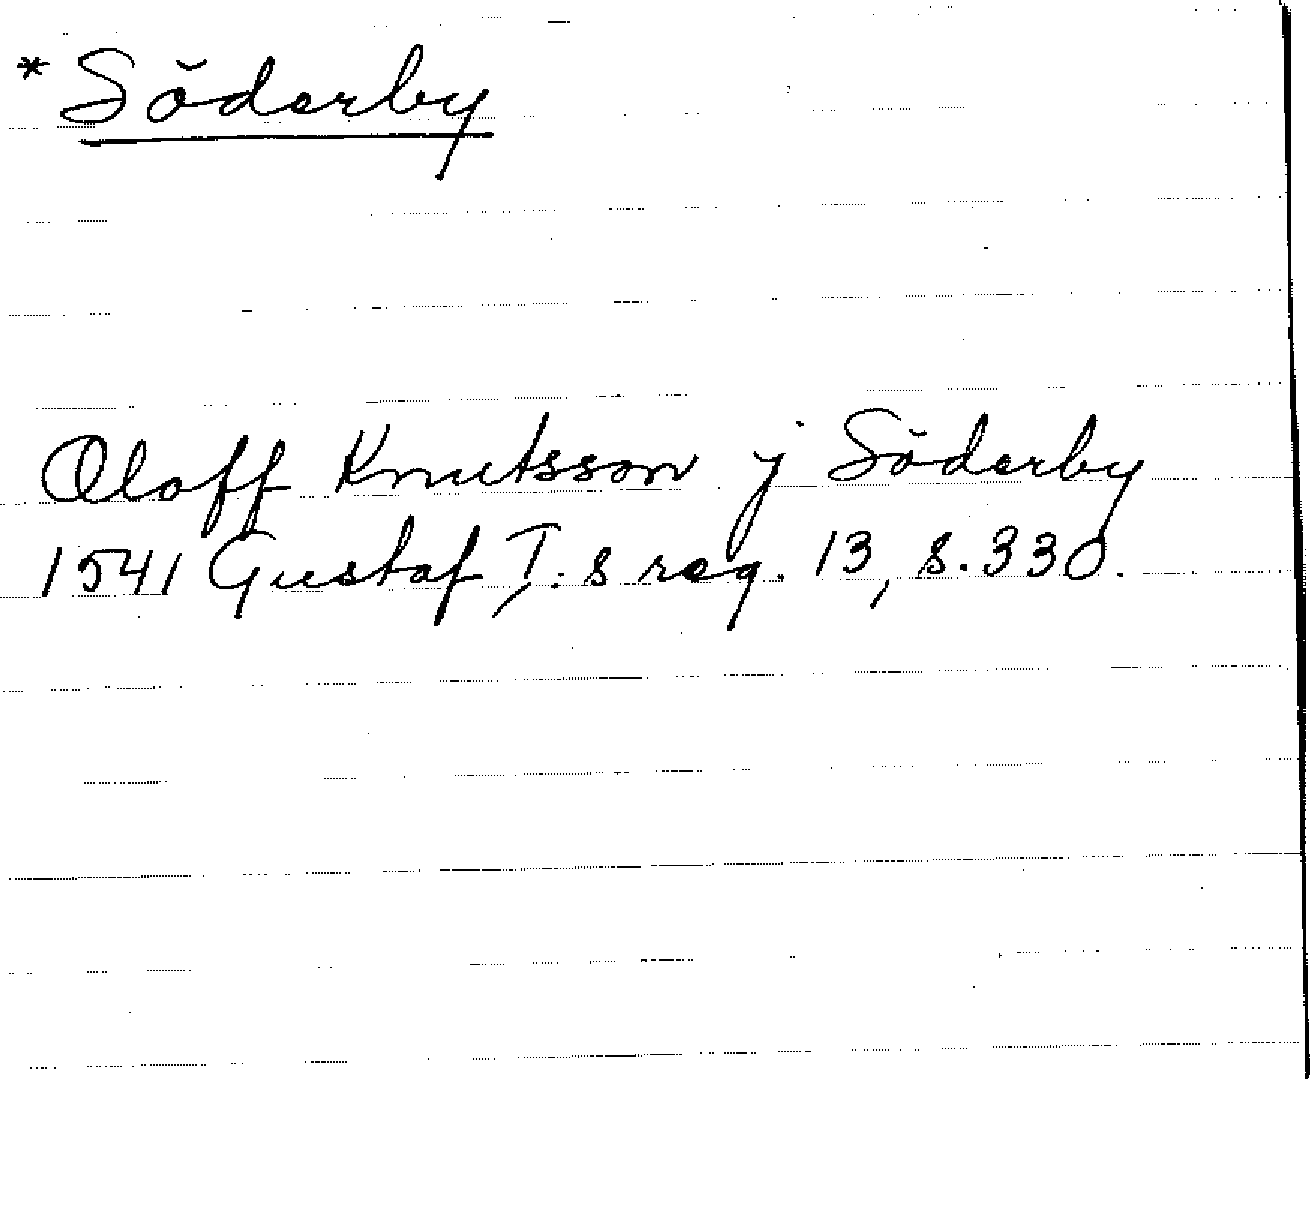 * Söderby
Oloff Knutsson j Söderby
1541 Gustaf I:s reg. 13, s. 330.